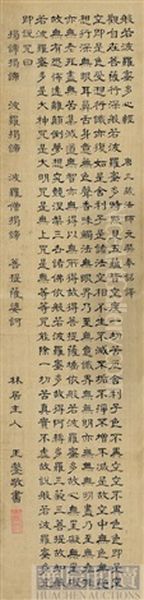 般若波羅蜜多心經 唐三藏法師元奘奉詔譯
觀自在菩薩行深般若波羅蜜多時照見五蘊皆空度一切苦厄舍利子色不異空空不異色色即是
空空即是色受想行識亦復如是舍利子是諸法空相不生不滅不垢不淨不增不減是故空中無色無受
想行識無眼耳鼻舌身意無色聲香味觸法無眼界乃至無意識界無無明亦無無明盡乃至無老死
亦無老死盡無苦集滅道無智亦無得以無所得故菩提薩埵依般若波羅蜜多故心無罣礙無罣礙
故無有恐怖遠離顛倒夢想究竟涅槃三世諸佛依般若波羅蜜多故得阿耨多羅三藐三菩提故知般
若波羅蜜多是大神咒是大明咒是無上咒是無等等咒能除一切苦真實不虛故說般若波羅蜜多咒
即說咒曰
揭諦揭諦 波羅揭諦 波羅僧揭諦 菩提薩婆訶
林居主人 王鏊敬書